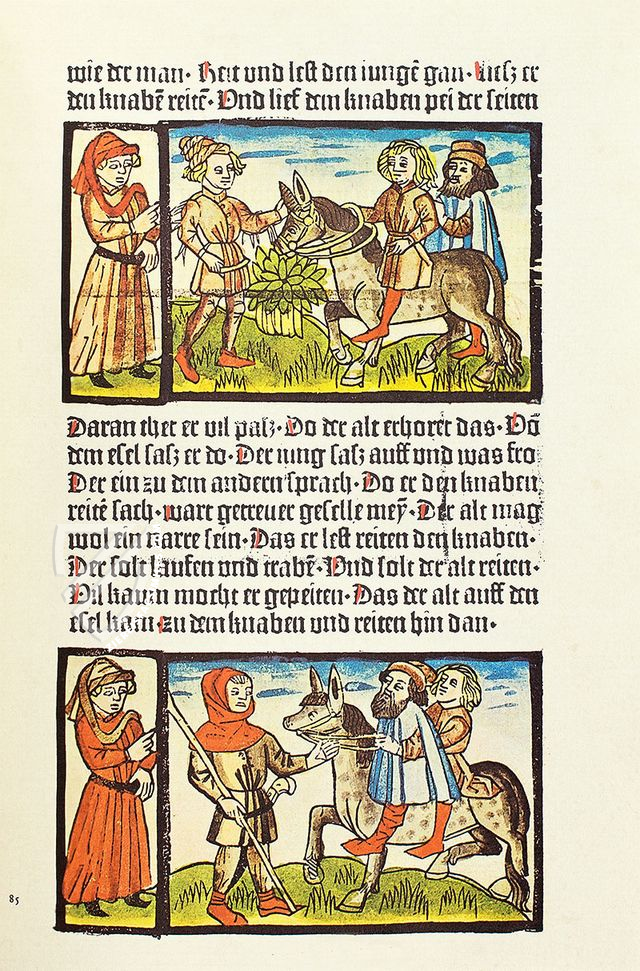 wie der man· Heit vnd lest den iungē gan· Liesz er
den knabē reitē· Vnd lief dem knaben pei der seiten
Daran thet er vil pasz· Do der alt erhoret das· Vō
dem esel sasz er do· Der iung sasz auff vnd was fro
Der ein zu dem andern sprach· Do er den knaben
reitē sach· wart getreuer geselle mey̅· Der alt mag
wol ein narre sein· Das er lest reiten den knaben·
Der solt laufen vnd trabē· Vnd solt der alt reiten·
Vil kaum mocht er gepeiten· Das der alt auff den
esel kam· zu dem knaben vnd reiten hin dan·
85